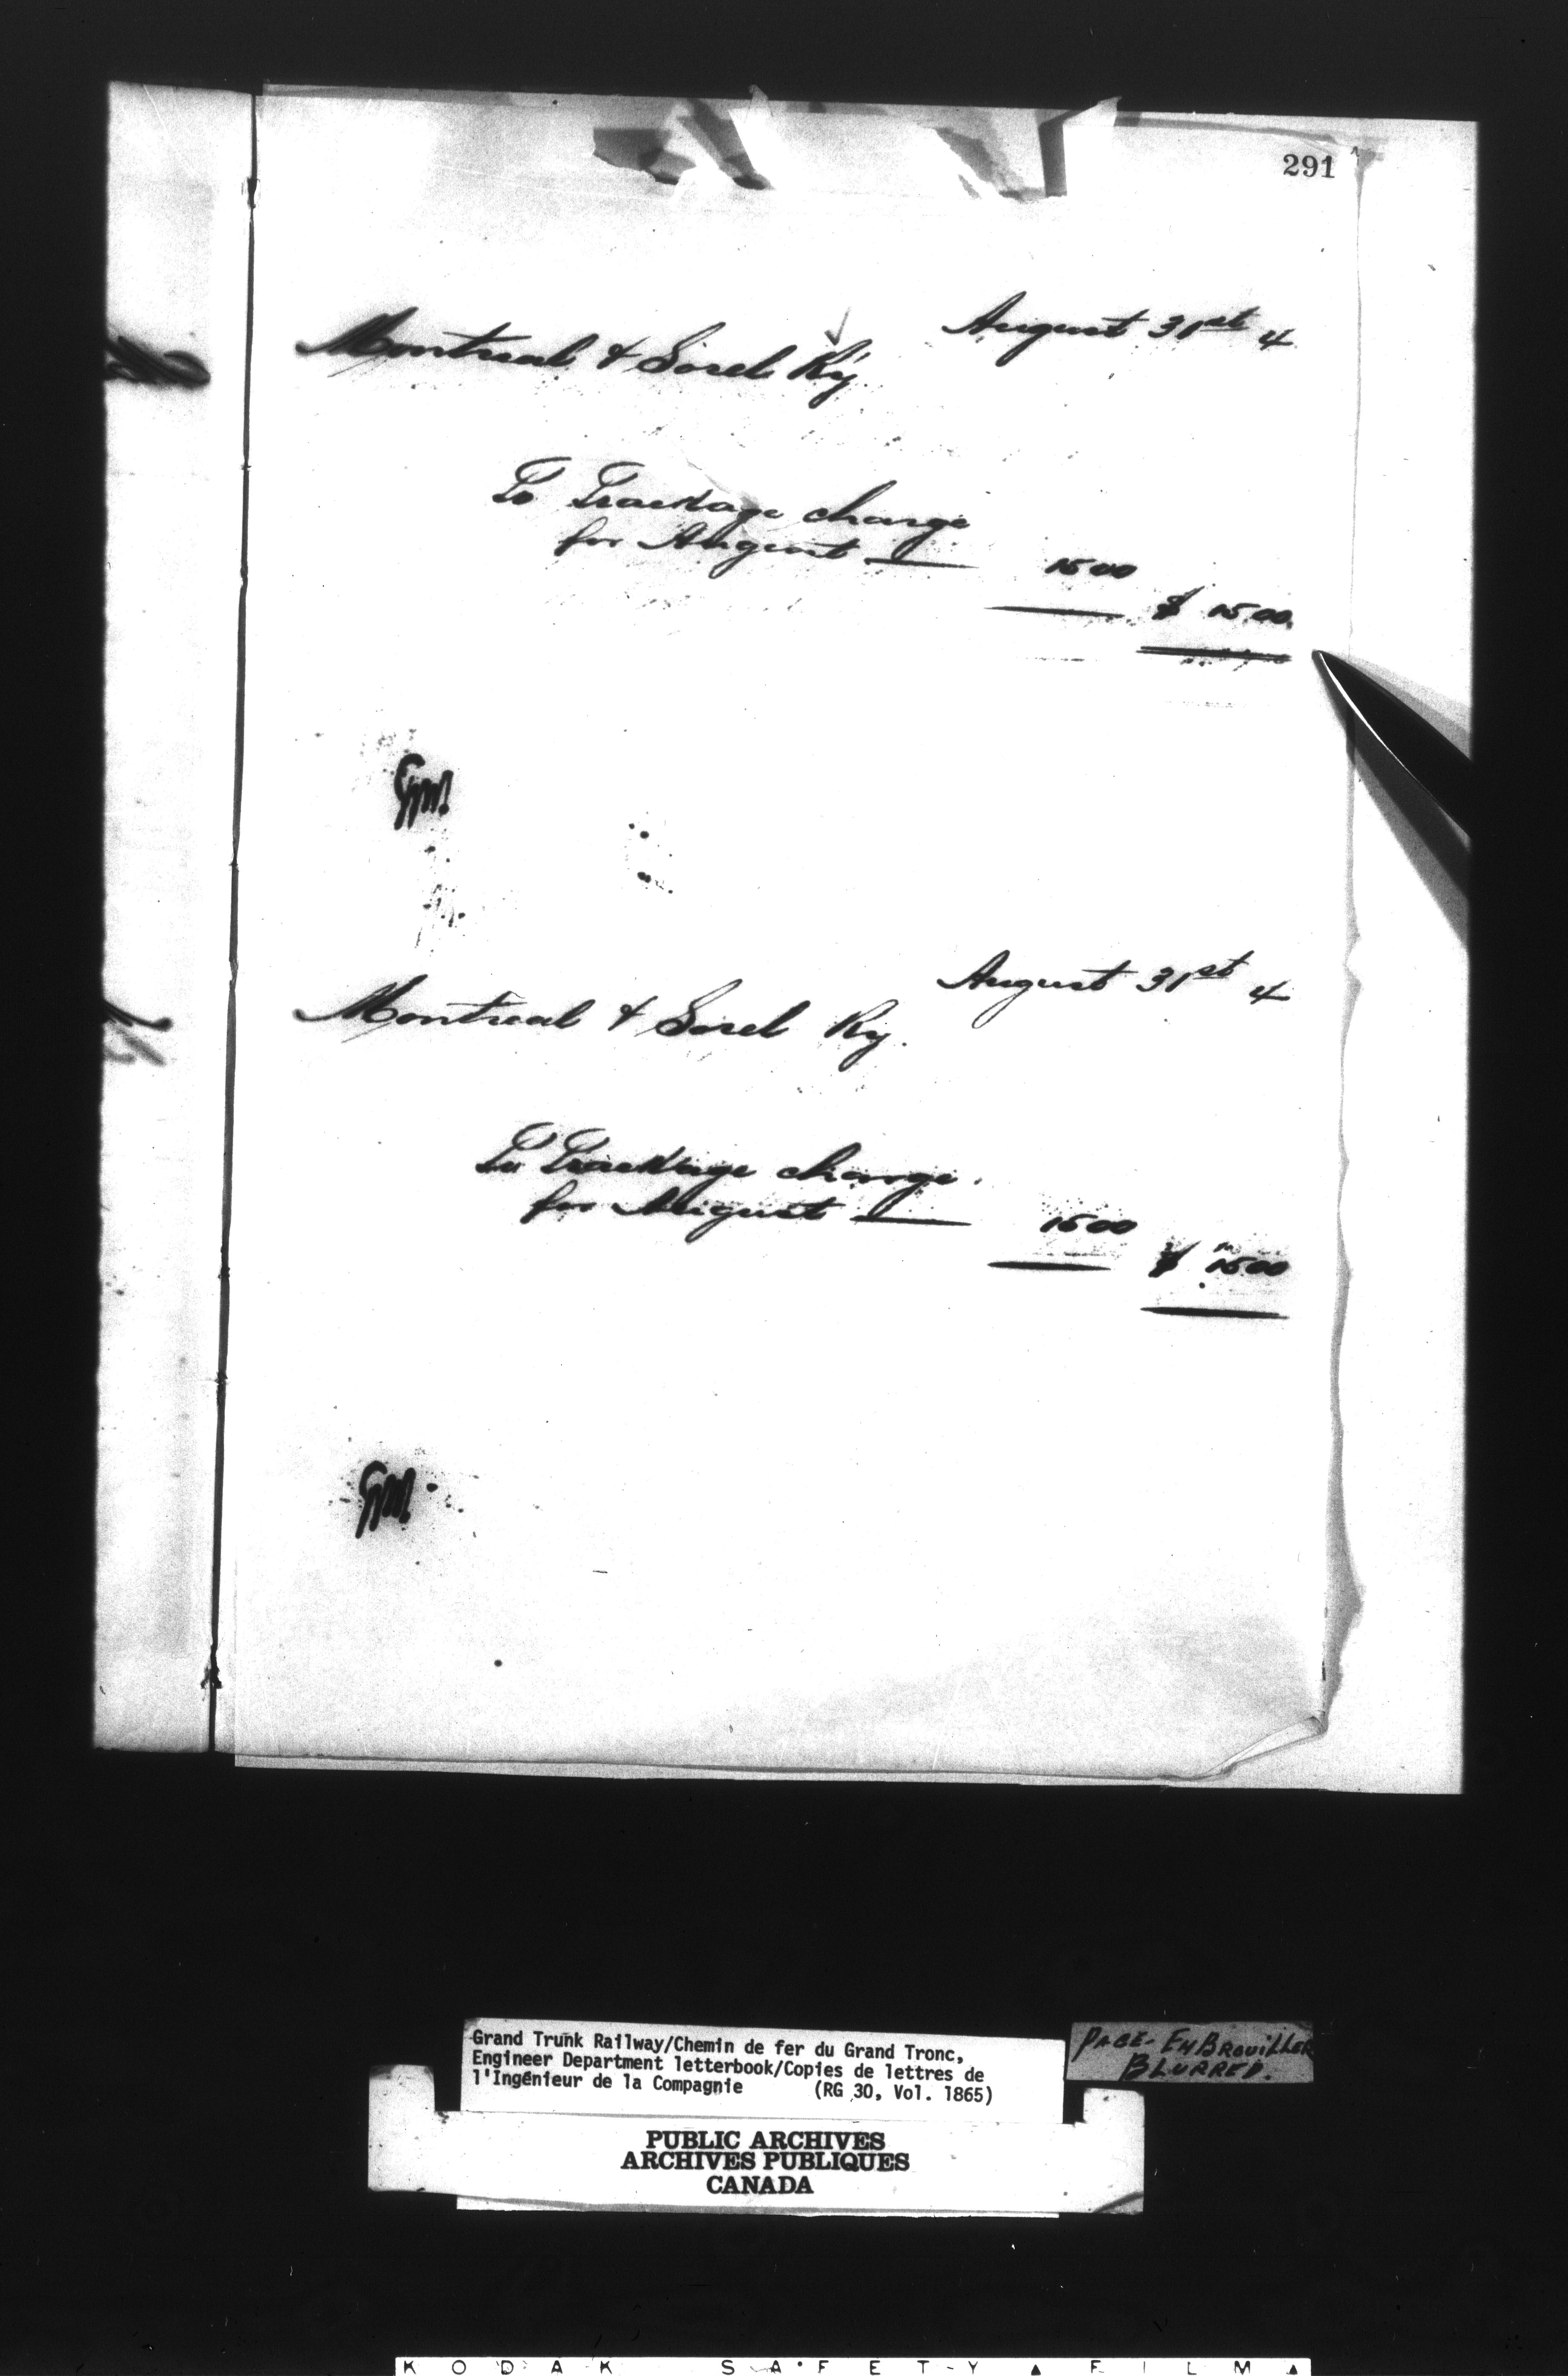 291
August 31st 4
Montreal & Sorel Ry.
To Trackage charge
for August — 1500
$ 1500
August 31st 4
Montreal & Sorel Ry.
To Trackage charge.
for August — 1500
$ 1500
Grand Trunk Railway/Chemin de fer du Grand Tronc,
Engineer Department letterbook/Copies de lettres de
l'Ingénieur de la Compagnie (RG 30, Vol. 1865)
PAGE-EMBROUILLER
BLURRED.
PUBLIC ARCHIVES
ARCHIVES PUBLIQUES
CANADA
KODAK SAFETY FILM